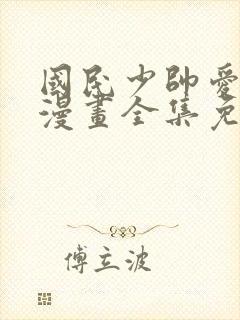 國民少帥愛
漫畫全集免
傅立波